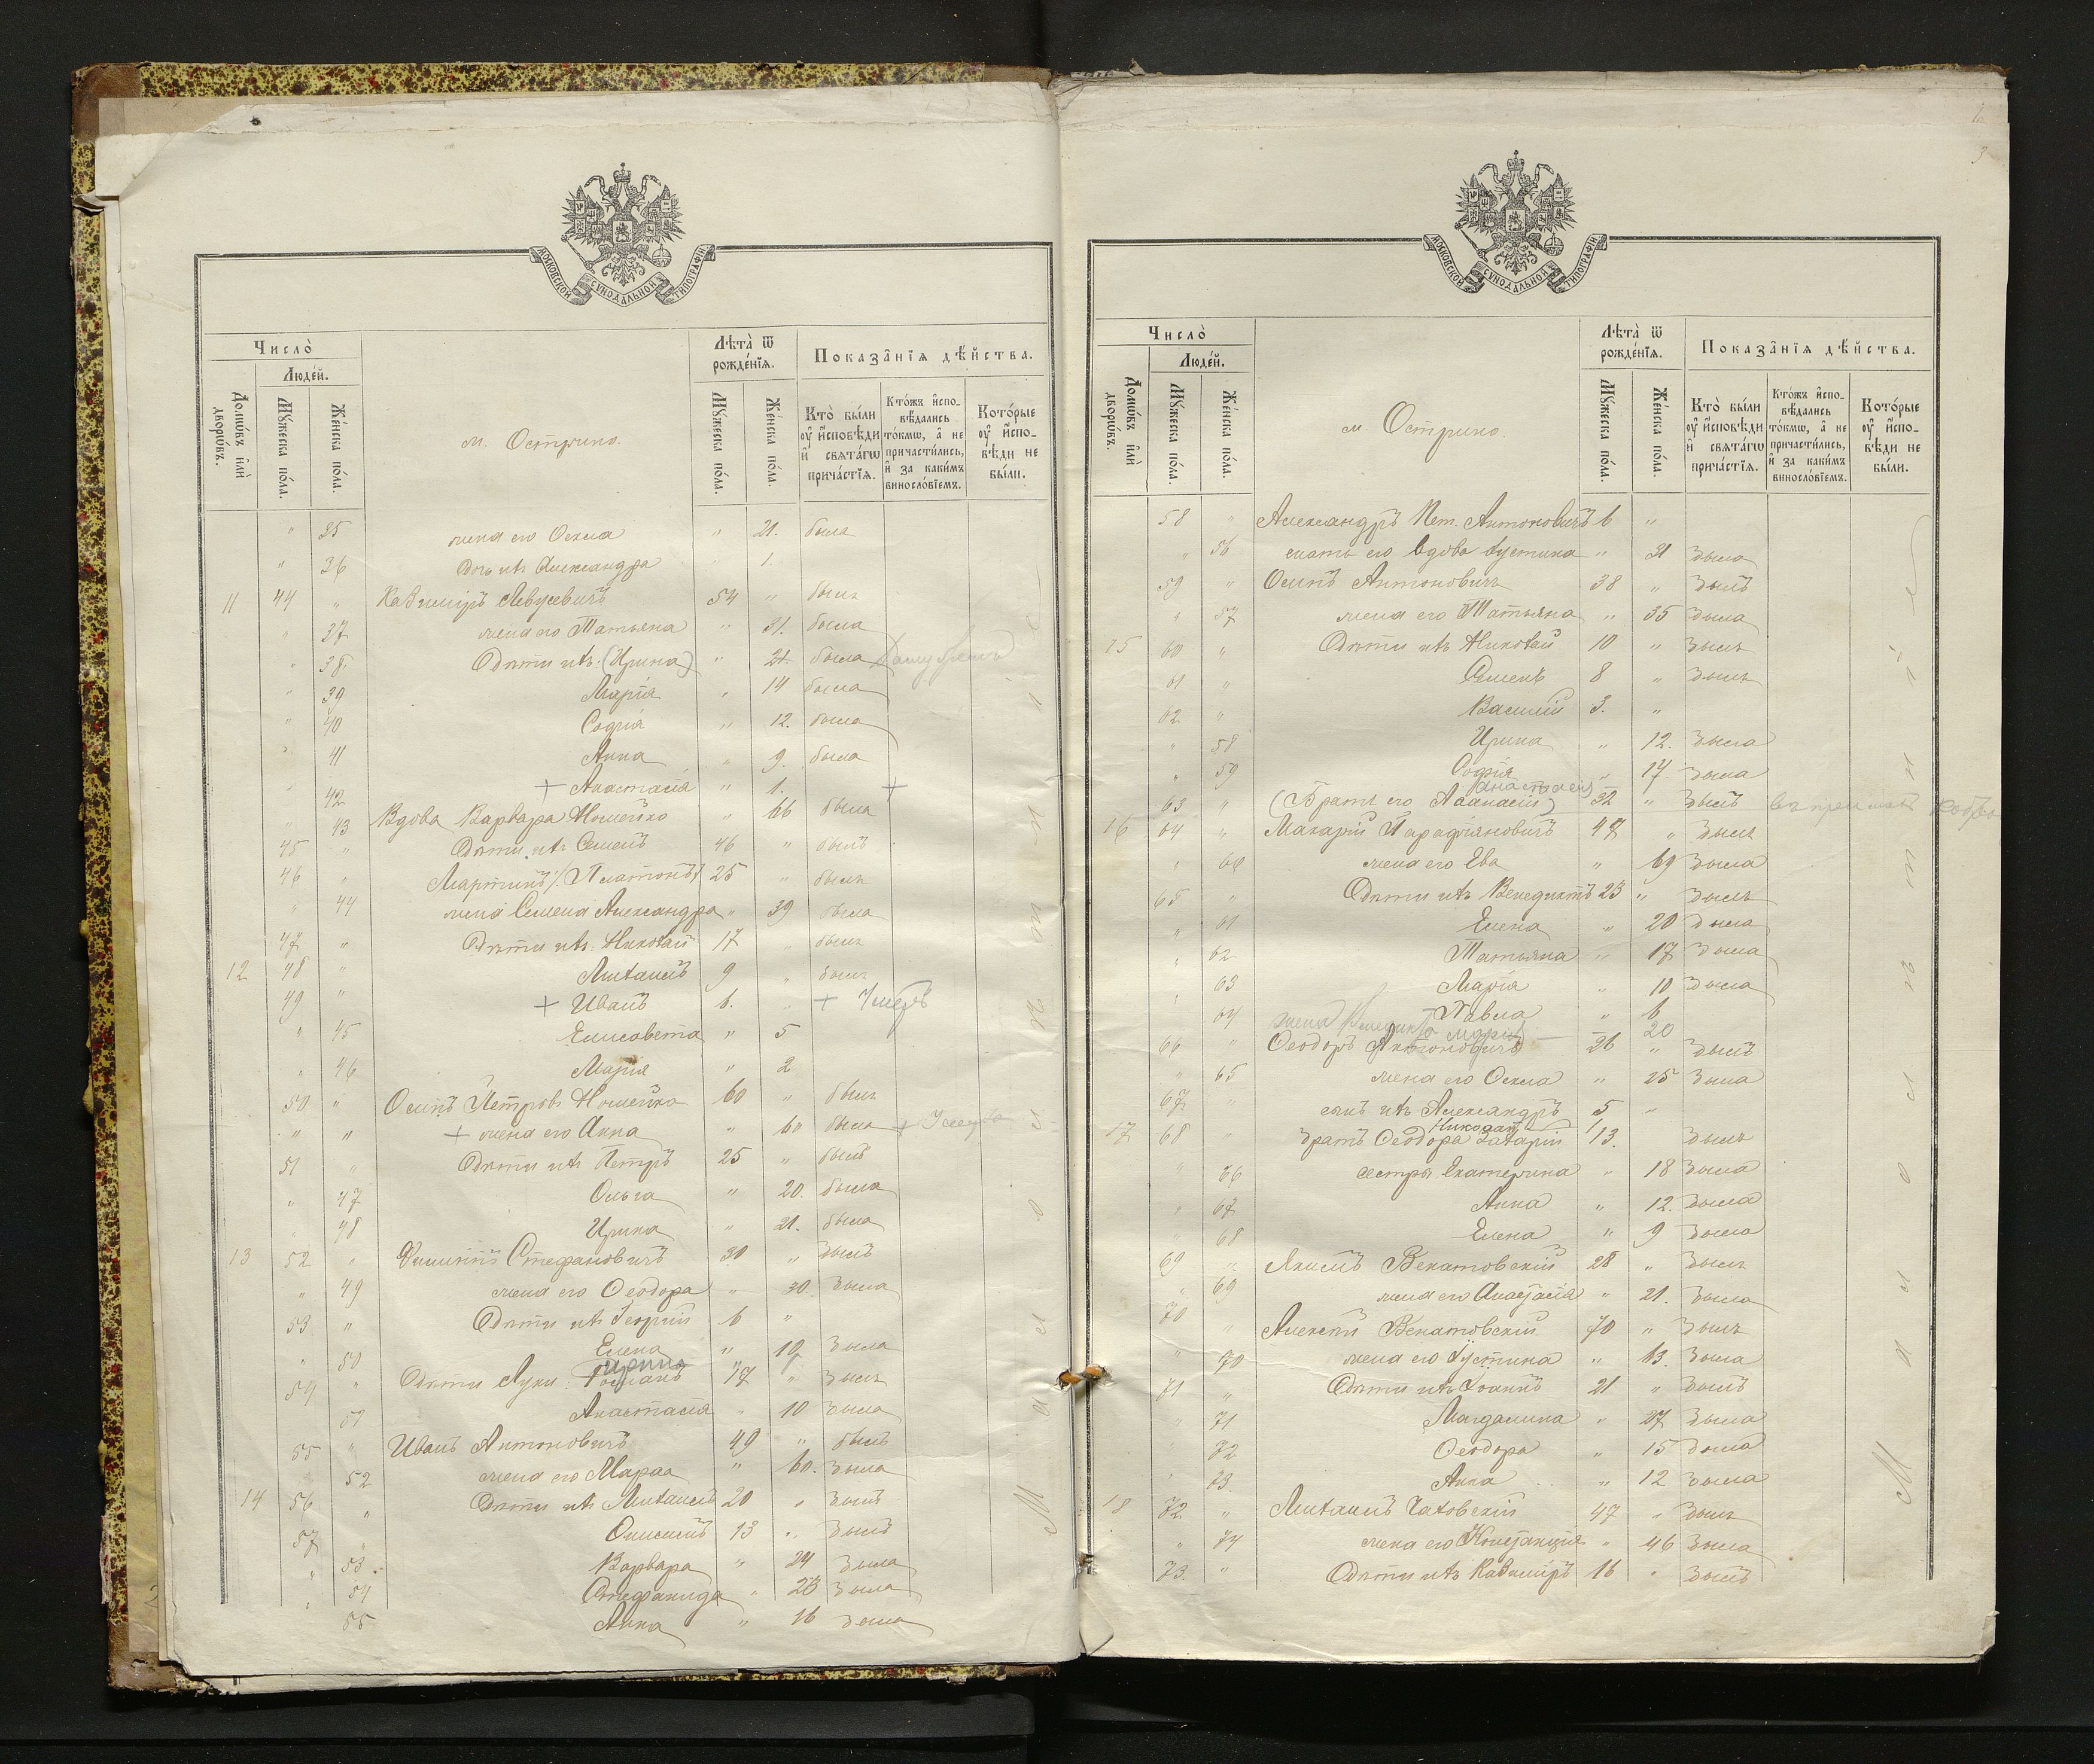 МОСКОВСКОЙ СѴНОДАЛЬНОЙ ТИПОГРАФІИ
Число̀
Людей.
Домѡвъ и҆лѝ дворѡвъ.
Мꙋжеска пола.
Женска пола.
м. Острино.
Лѣта̀ ѿ рожденїѧ.
Мꙋжеска пола.
Женска пола.
Показанїѧ дѣйства.
Кто̀ были оу҆ и҆сповѣди и҆ свѧтагѡ причастїѧ.
Ктожъ и҆сповѣдались токмѡ, а҆ не причастились, и҆ за какимъ винословїемъ.
Которые оу҆ и҆сповѣди не были.
" 35 жена его Оекла " 21. была
" 36 Дочь ихъ Александра " 1.
11 44 " Казиміръ Левусевичъ 54 " былъ
" 37 жена его Татьяна " 31. была
" 38. Дѣти ихъ: (Ирина) " 21. была
" 39 Марія " 14 была
" 40 Софія " 12. была
" 41 Анна " 9. была
" 42 + Анастасія " 1. +
" 43 Вдова Варвара Ношейко " 66 была
45 " Дѣти ихъ Семенъ 46 " былъ
46 " Мартинъ (Платонъ) 25 " былъ
" 44 жена Семена Александра " 39 была
47 " Дѣти ихъ: Николай 17 " былъ
12 48 " Михаилъ 9 " былъ
49 " + Иванъ 6. " + Умеръ
" 45 Елисавета " 5
" 46 Марія " 2
50 " Осипъ Петровъ Ношейко 60 " былъ
" " + жена его Анна " 60 была +
51 " Дѣти ихъ Петръ 25 " былъ
" 47 Ольга " 20. была
48 Ирина " 21. была
13 52 " Филиппъ Стефановичъ 30 " былъ
" 49 жена его Оеодора " 30. была
53 " Дѣти ихъ Георгій 6 "
" 50 Елена " 10 была
Ирина
54 " Дѣти Луки: Романъ 17 " былъ
51 Анастасія " 10 была
55 " Иванъ Антоновичъ 49 " былъ
52 жена его Марѳа " 60. была
14 56 " Дѣти ихъ Михаилъ 20 " былъ
57 Онисимъ 13 " былъ
" 53 Варвара " 24 была
" 54 Стефанида " 23 была
55 Анна " 16 была
3
МОСКОВСКОЙ СѴНОДАЛЬНОЙ ТИПОГРАФІИ
Число̀
Людей.
Домѡвъ и҆лѝ дворѡвъ.
Мꙋжеска пола.
Женска пола.
м. Острино.
Лѣта̀ ѿ рожденїѧ.
Мꙋжеска пола.
Женска пола.
Показанїѧ дѣйства.
Кто̀ были оу҆ и҆сповѣди и҆ свѧтагѡ причастїѧ.
Ктожъ и҆сповѣдались токмѡ, а҆ не причастились, и҆ за какимъ винословїемъ.
Которые оу҆ и҆сповѣди не были.
58 " Александръ Пет. Антоновичъ 6 "
" 56 мать его вдова Іустина " 31 была
59 " Осипъ Антоновичъ 38 " былъ
" 57 жена его Татьяна " 35 была
15 60 " Дѣти ихъ Николай 10 " былъ
61 " Семенъ 8 " былъ
62 " Василій 3. "
" 58 Ирина " 12. была
" 59 Софія " 14 была
Анастасія
63 " (Братъ его Аѳанасій) 32 " былъ
16 64 " Макарій Парафіяновичъ 47 " былъ
" 60 жена его Ева " 69 была
65 " Дѣти ихъ Венедиктъ 23 " былъ
" 61 Елена " 20 была
" 62 Татьяна " 17 была
" 63 Марія " 10 была
64 Павла " 6
жена Марія 20
66 " Ѳеодоръ Антоновичъ 26 " былъ
" 65 жена его Оекла " 25 была
67 " сынъ ихъ Александръ 5 "
Николай
17 68 " братъ Ѳеодора Захарій 13. былъ
" 66 сестры Екатерина " 18 была
" 67 Анна " 12. была
" 68 Елена " 9 была
69 " Якимъ Векатовскій 28 " былъ
" 69 жена его Анастасія " 21. была
70 " Алексѣй Векатовскій 70 " былъ
" 70 жена его Іустина " 63. была
71 " Дѣти ихъ Іоаннъ 21 " былъ
" 71 Магдалина " 27 была
72 Ѳеодора " 15 была
" 73. Анна " 12 была
18 72 " Михаилъ Чаховскій 47 " былъ
" 74 жена его Констанція " 46 была
73. " Дѣти ихъ Казиміръ 16 " былъ